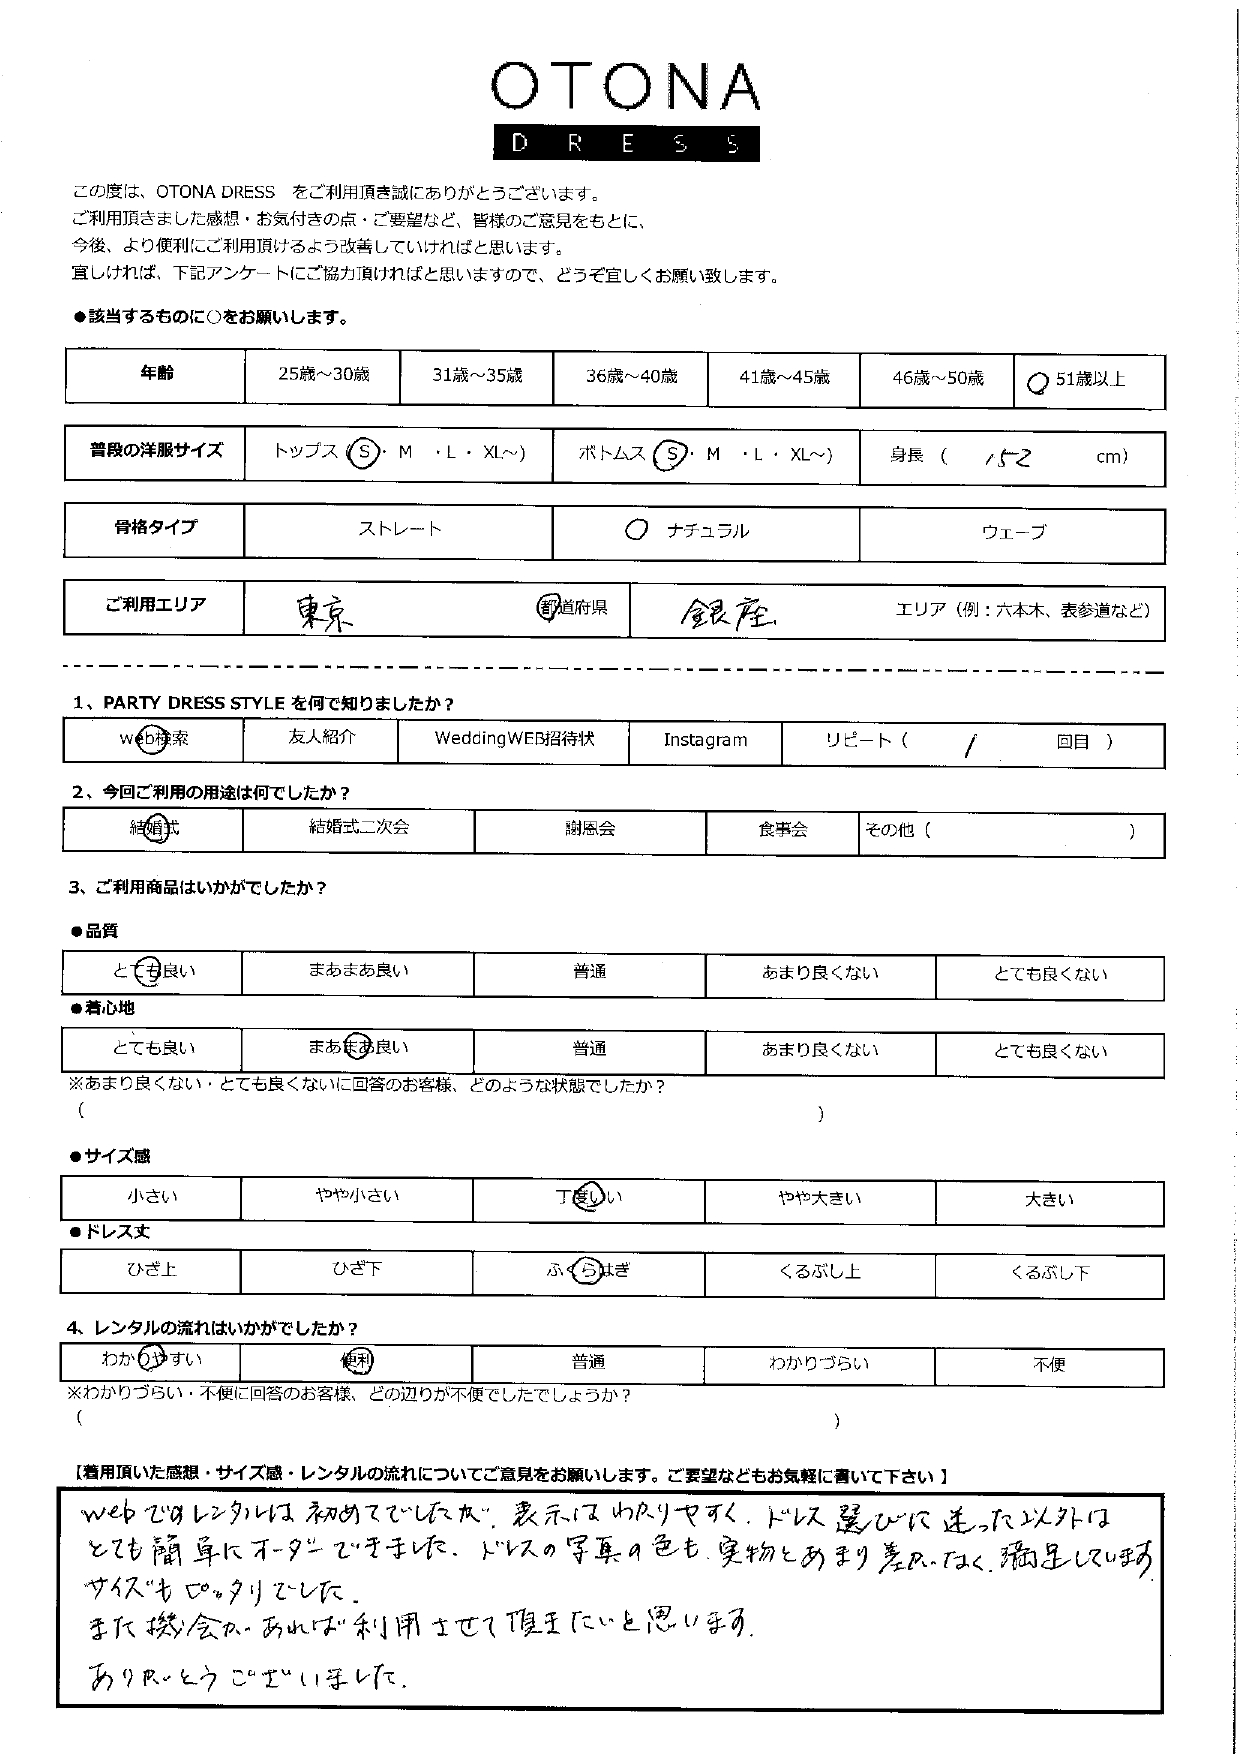 OTONA
DRESS
この度は、OTONA DRESS　をご利用頂き誠にありがとうございます。
ご利用頂きました感想・お気付きの点・ご要望など、皆様のご意見をもとに、
今後、より便利にご利用頂けるよう改善していければと思います。
宜しければ、下記アンケートにご協力頂ければと思いますので、どうぞ宜しくお願い致します。
●該当するものに○をお願いします。
年齢 25歳～30歳 31歳～35歳 36歳～40歳 41歳～45歳 46歳～50歳 ○ 51歳以上
普段の洋服サイズ トップス (S・ M ・L ・ XL～) ボトムス (S・ M ・L ・ XL～) 身長 ( 152 cm)
骨格タイプ ストレート ○ ナチュラル ウェーブ
ご利用エリア 東京 都道府県 銀座 エリア（例：六本木、表参道など）
1、PARTY DRESS STYLE を何で知りましたか？
web検索 友人紹介 WeddingWEB招待状 Instagram リピート（ / 回目 ）
2、今回ご利用の用途は何でしたか？
結婚式 結婚式二次会 謝恩会 食事会 その他（ ）
3、ご利用商品はいかがでしたか？
●品質
とても良い まあまあ良い 普通 あまり良くない とても良くない
●着心地
とても良い まあまあ良い 普通 あまり良くない とても良くない
※あまり良くない・とても良くないに回答のお客様、どのような状態でしたか？
（ ）
●サイズ感
小さい やや小さい 丁度いい やや大きい 大きい
●ドレス丈
ひざ上 ひざ下 ふくらはぎ くるぶし上 くるぶし下
4、レンタルの流れはいかがでしたか？
わかりやすい 便利 普通 わかりづらい 不便
※わかりづらい・不便に回答のお客様、どの辺りが不便でしたでしょうか？
（ ）
【着用頂いた感想・サイズ感・レンタルの流れについてご意見をお願いします。ご要望などもお気軽に書いて下さい 】
webでのレンタルは初めてでしたが、表示はわかりやすく、ドレス選びに迷った以外は
とても簡単にオーダーできました。ドレスの写真の色も、実物とあまり差がなく、満足しています
サイズもピッタリでした。
また機会があれば利用させて頂きたいと思います。
ありがとうございました。